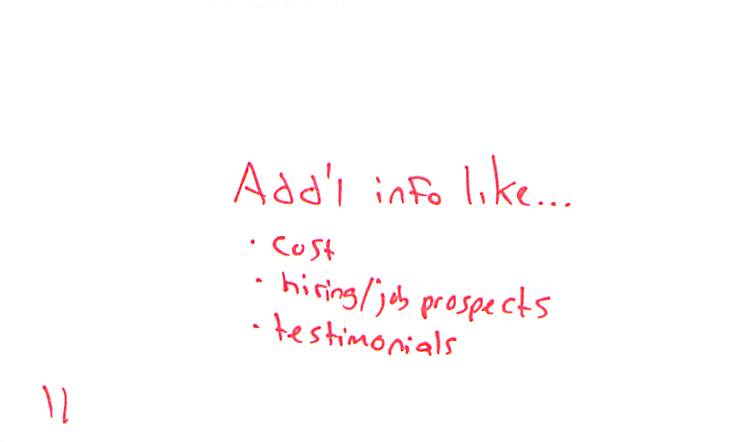 Add'l info like...
· cost
· hiring/job prospects
· testimonials
11